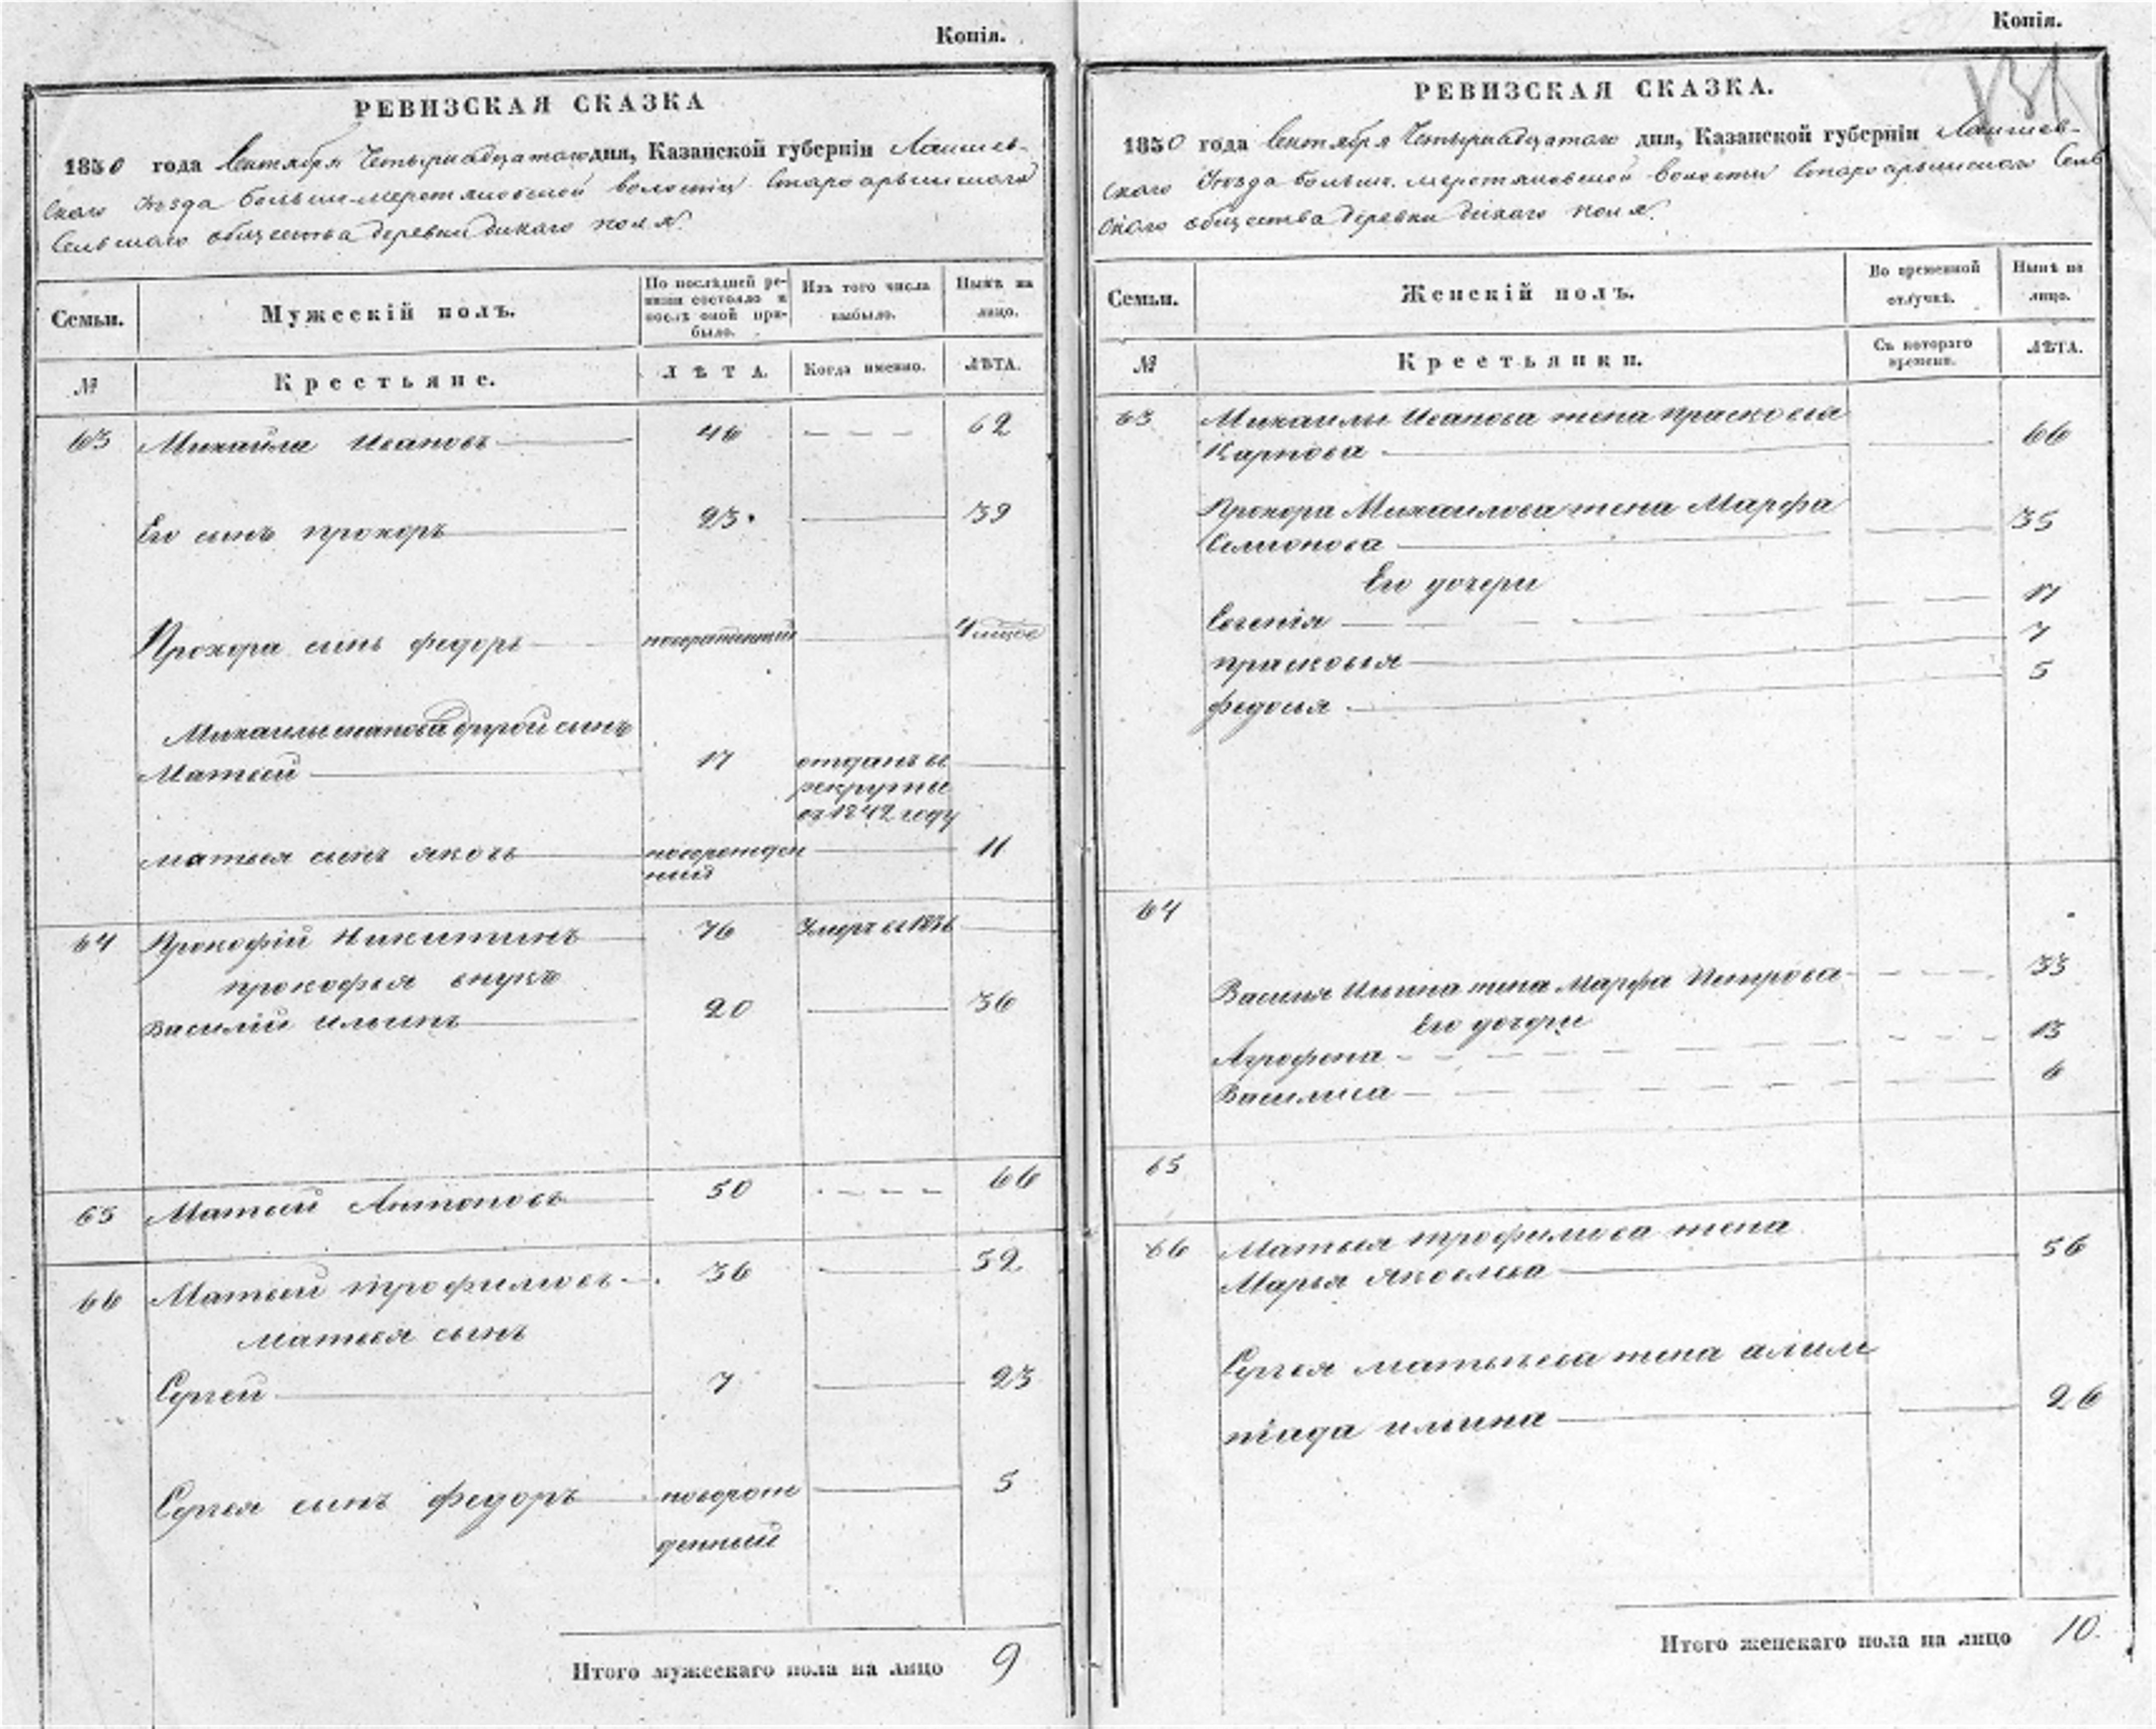 Копія.
РЕВИЗСКАЯ СКАЗКА
1850 года Сентября Четырнадцатого дня, Казанской губерніи Лаишев-
скаго Уѣзда больше-меретяковской волости Староарышскаго
Сельскаго общества деревни дикаго поля.
Семьи.
Мужескій полъ.
По послѣдней ре-
визіи состояло и
послѣ оной при-
было.
Изъ того числа
выбыло.
Нынѣ на
лицо.
№
Крестьяне.
ЛѢТА.
Когда именно.
ЛѢТА.
63 Михайла Ивановъ 46 62
Его сынъ прохоръ 23. 39
Прохора сынъ федоръ новорожденный
Михаилы иванова другой сынъ
Матвей 17 отданъ въ
рекруты
въ 1842 году
матвея сынъ яковъ новорожден 11
ный
64 Прокофій Никитинъ 76 Умеръ въ 1836
прокофья внукъ
Василій ильинъ 20 36
65 Матвей Антоновъ 50 66
66 Матвей трофимовъ 36 52
матвея сынъ
Сергей 7 23
Сергея сынъ федоръ новорож 5
денный
Итого мужескаго пола на лицо 9
Копія.
131
РЕВИЗСКАЯ СКАЗКА.
1850 года Сентября Четырнадцатого дня, Казанской губерніи Лаишев-
скаго Уѣзда больш. меретяковской волости Староарышскаго Сель
скаго общества деревни дикаго поля.
Семьи.
Женскій полъ.
Во временной
отлучкѣ.
Нынѣ на
лицо.
№
Крестьянки.
Съ котораго
времени.
ЛѢТА.
63 Михаилы Иванова жена прасковія
Карпова 66
Прохора Михаилова жена Марфа
Семионова 35
Его дочери
Евгенія 17
прасковья 7
федосья 5
64
Василья Ильина жена Марфа Петрова 33
Его дочери
Агрофена 13
Василиса 6
65
66 Матвея трофимова жена
Марья яковлева 56
Сергея матвеева жена алим
піада ильина 26
Итого женскаго пола на лицо 10.